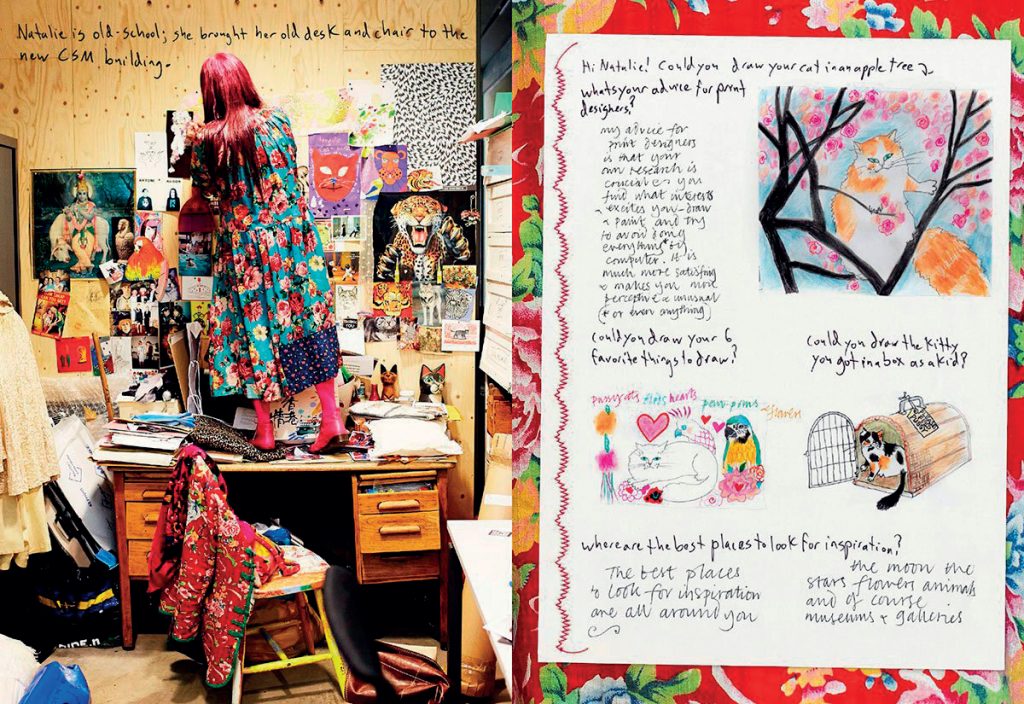 Natalie is old-school; she brought her old desk and chair to the
new CSM building.
Hi Natalie! Could you draw your cat in an apple tree
whats your advice for print
designers?
my advice for
print designers
is that your
own research is
crucial & you
find what interests
& excites you - draw
& paint and try
to avoid doing
everything by
computer. it is
much more satisfying
& makes you more
perceptive & unusual
(* or even anything)
Could you draw your 6
favorite things to draw?
pussycats birds hearts
pom-poms
flowers
Could you draw the kitty
you got in a box as a kid?
where are the best places to look for inspiration?
The best places
to look for inspiration
are all around you
the moon the
stars flowers animals
and of course
museums & galleries